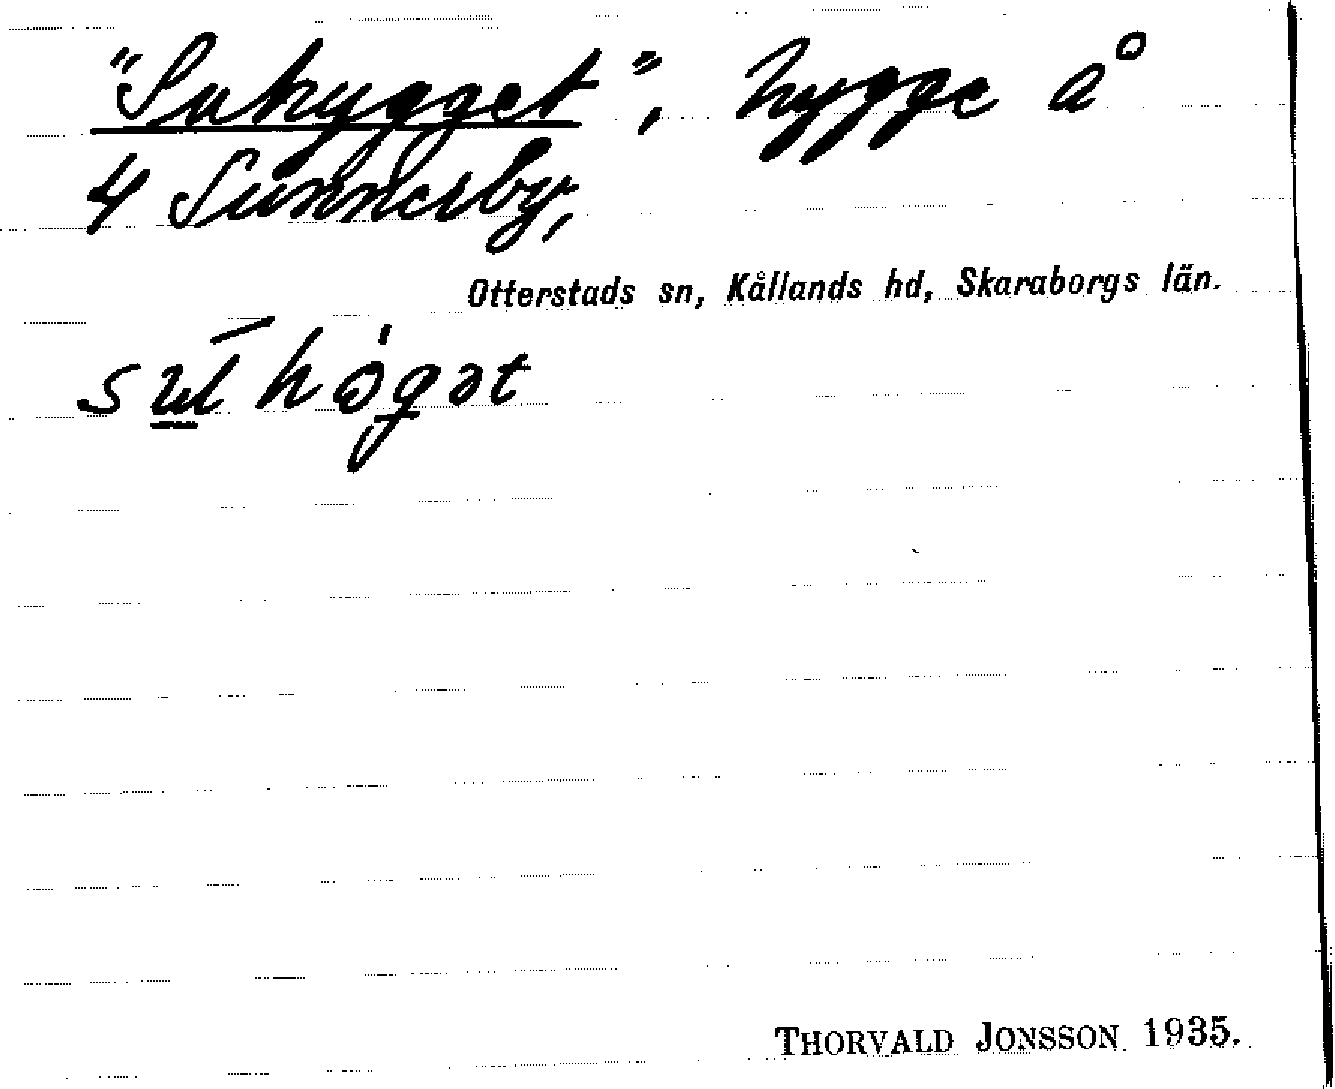 "Suhygget", hygge å
4 Sunnersby,
Otterstads sn, Kållands hd, Skaraborgs län.
THORVALD JONSSON 1935.